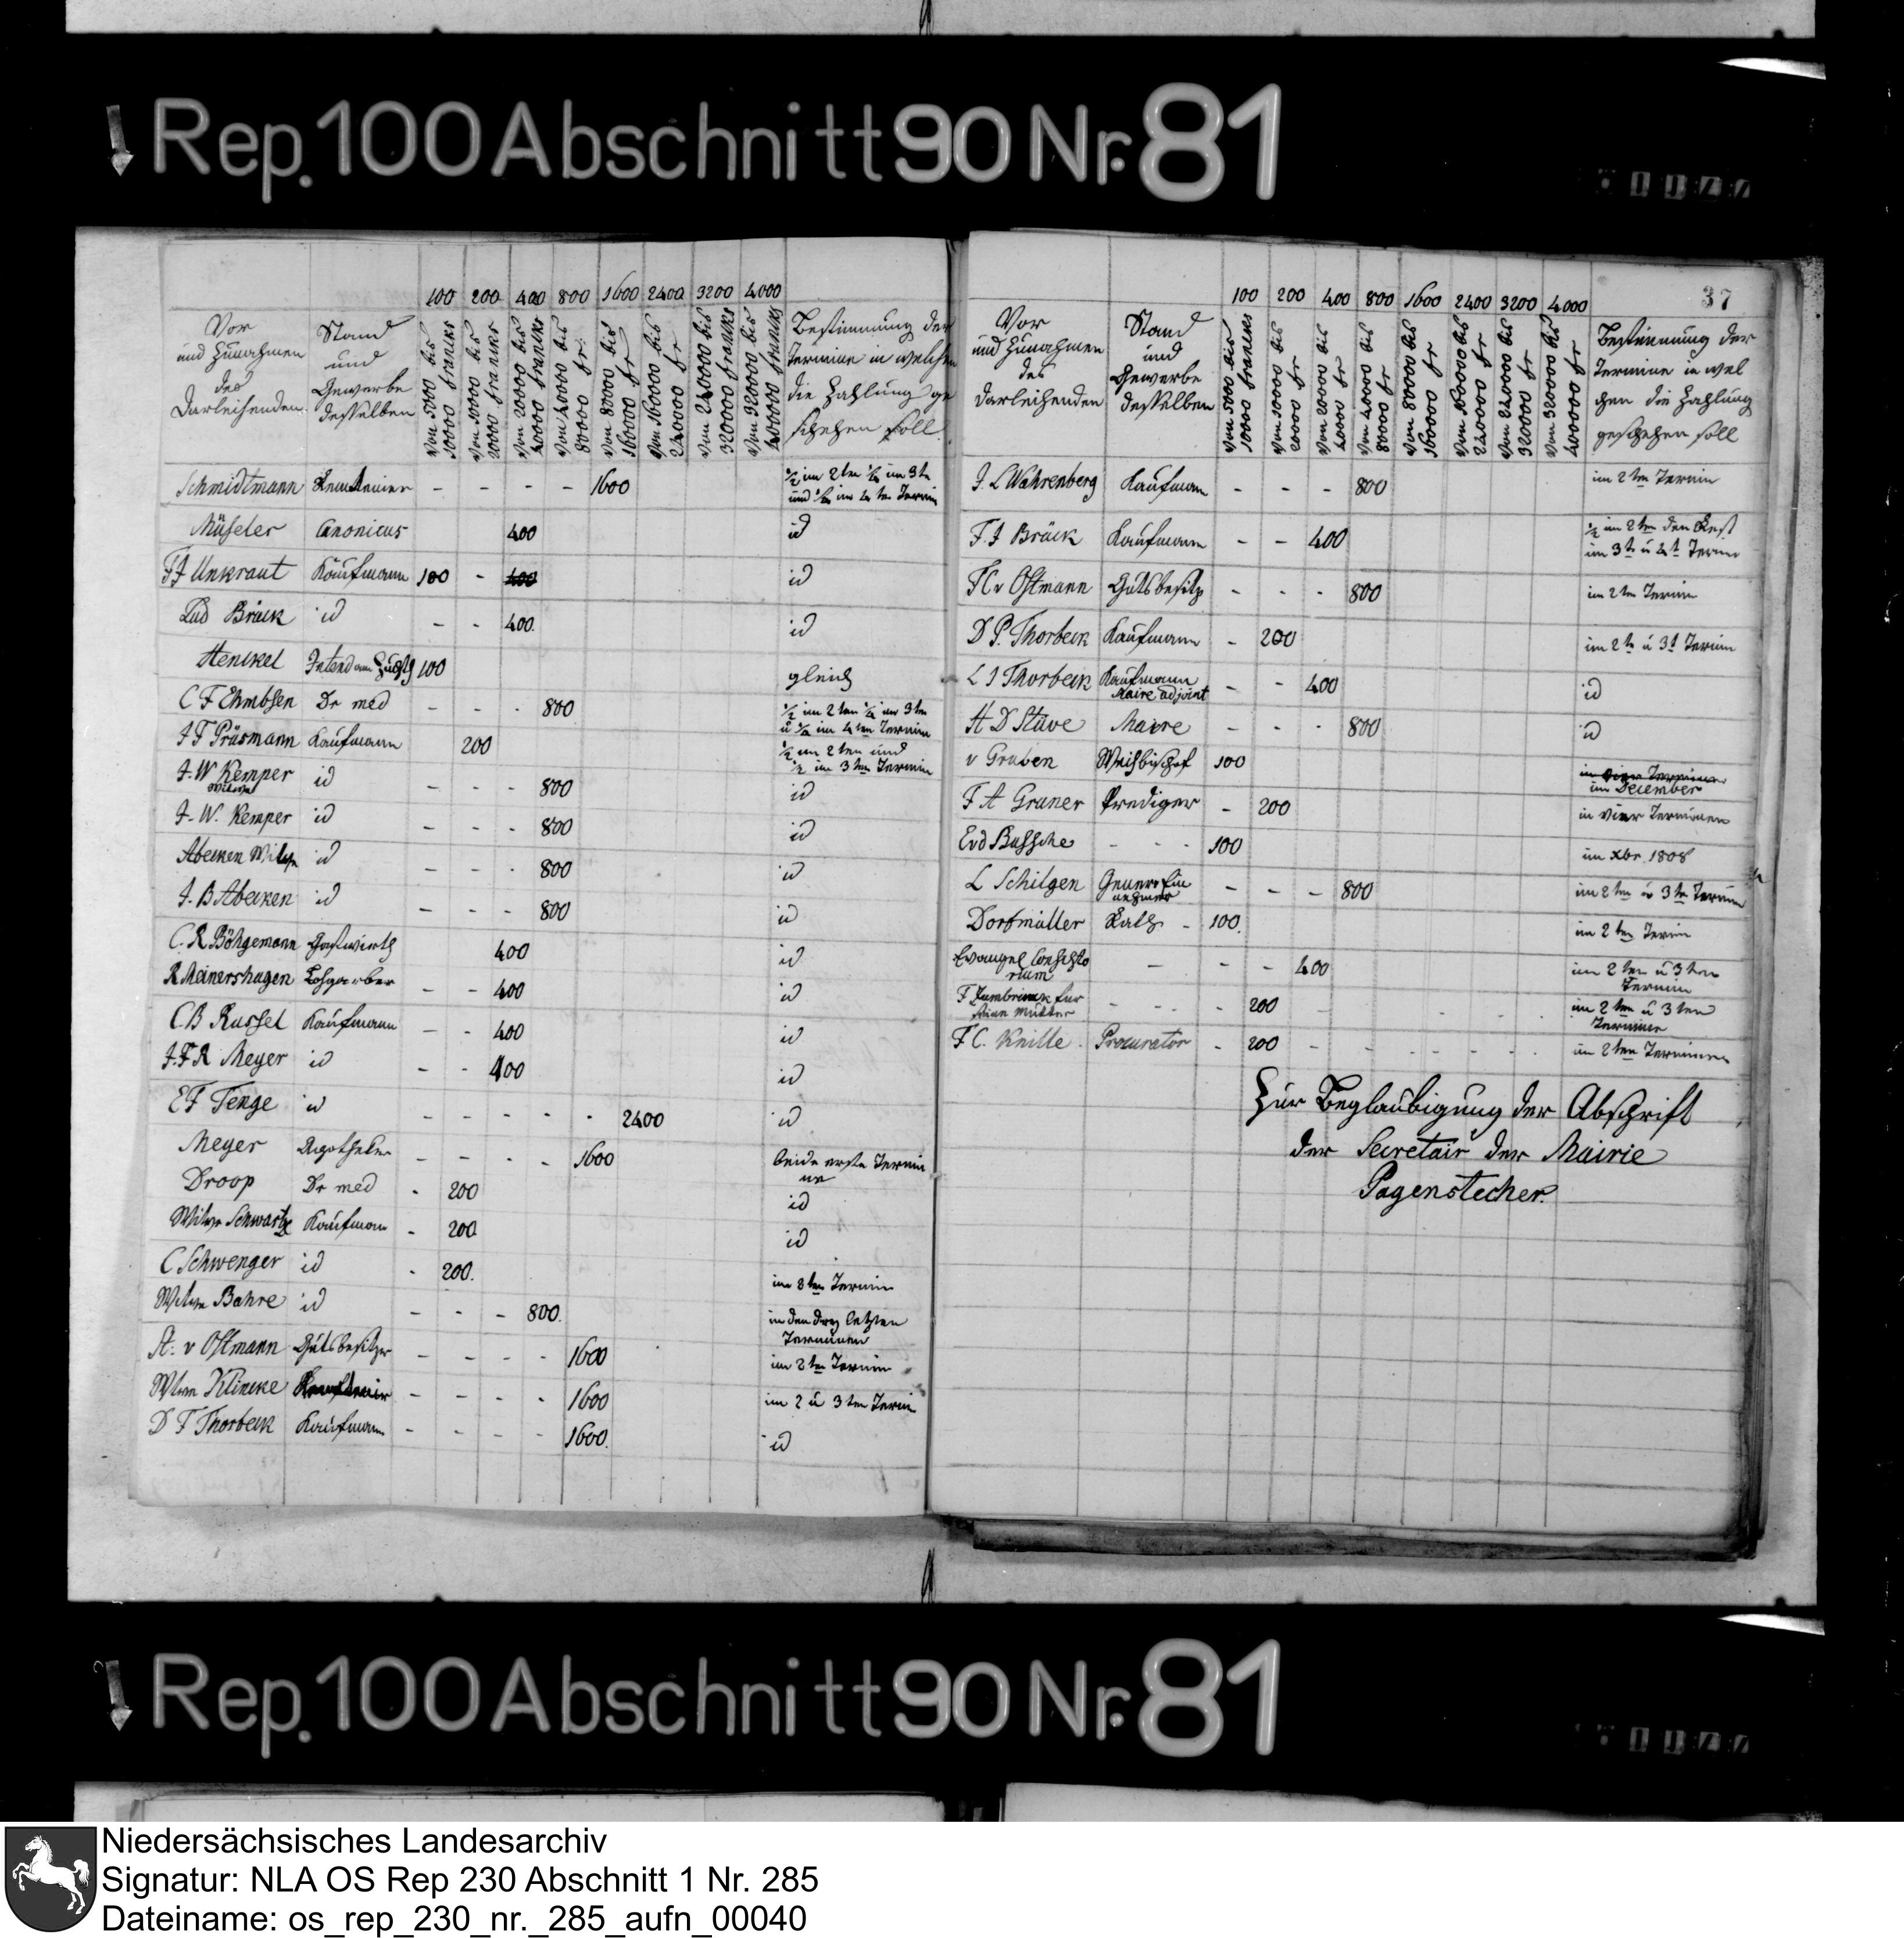 Rep. 100 Abschnitt 90 Nr. 81
100 200 400 800 1600 2400 3200 4000
Vor und Zunahmen des Darleihenden
Stand und Gewerbe desselben
Von 5000 bis 10000 Francks
Von 10000 bis 20000 Francks
Von 20000 bis 40000 Francks
Von 40000 bis 80000 fr.
Von 80000 bis 160000 fr
Von 160000 bis 240000 fr
Von 240000 bis 320000 Francks
Von 320000 bis 400000 Francks
Bestimmung der
Termine in welchen
die Zahlung ge
schehen soll
Schmidtmann Rentenier - - - - 1600 ½ im 2ten ¼ im 3te
und ¼ im 4ten Termin
Müseler Canonicus 400 id
FJ Unkraut Kaufmann 100 - 400 id
Lud Bräck id - - 400. id
Henckel 100 gleich
C F Ehmbsen Dr med - - - 800 ½ im 2ten ¼ im 3ten
u ¼ im 4ten Termin
J F Präsmann Kaufmann 200 ½ im 2ten und
½ im 3ten Termin
J. W Kemper id - - - 800 id
Witwe
J. W. Kemper id - - - 800 id
Abeken Witwe id - - - 800 id
J. B Abeken id - - - 800 id
C. R Böhgemann Gastwirth 400 id
R Meinershagen Lohgerber - - 400 id
C.B Russel Kaufmann - - 400 id
J. F R Meyer id - - 400 id
E F Tenge id - - - - - 2400 id
Meyer Apotheker - - - - 1600 beide erste Termi
ne
Droop Dr med - 200 id
Witwe Schwartze Kaufman - 200 id
C Schwenger id - 200. im 3ten Termin
Witwe Bahre id - - - 800. in den drey letzten
Terminen
St. v Ostmann Gutsbesitzer - - - - 1600 im 2ten Termin
Witwe Klincke - - - - 1600 im 2 u 3ten Termin
D F Thorbeck Kaufmann - - - - 1600. id
37
100 200 400 800 1600 2400 3200 4000
Vor und Zunahmen des Darleihenden
Stand und Gewerbe desselben
Von 5000 bis 10000 Francks
Von 10000 bis 20000 fr
Von 20000 bis 40000 fr
Von 40000 bis 80000 fr
Von 80000 bis 160000 fr
Von 160000 bis 240000 fr
Von 240000 bis 320000 fr
Von 320000 bis 400000 fr
Bestimmung der
Termine in wel
chen die Zahlung
geschehen soll
J. L Wahrenberg Kaufman - - - 800 im 2ten Termin
F. J Bräck Kaufmann - - 400 ½ im 2ten den Rest
im 3te u 4te Termin
F C v Ostmann Gutsbesitz - - - 800 im 2ten Termin
D P. Thorbeck Kaufmann - 200 im 2te u 3t Termin
L J Thorbeck Kaufmann - - 400 id
Maire adjoint
H D Stüve Maire - - - 800 id
v Gruben Weihbischof 100 in vier Terminen
im December
F A Gruner Prediger - 200 in Vier Terminen
E v d Bussche - - - 100 im Xbr. 1808
L Schilgen General Ein - - - 800 im 2ten u 3ten Termin
nehmer
Dorfmüller Rath - 100. im 2ten Termin
Evangel Consisto - - - 400 im 2ten u 3ten
rium Termin
für - - - 200 im 2ten u 3ten
seine Mutter Termine
F C. Knille. Procurator - 200 - - - - - - im 2ten Terminen
Zur Beglaubigung der Abschrift
der Secretair der Mairie
Pagenstecher.
Rep. 100 Abschnitt 90 Nr. 81
Niedersächsisches Landesarchiv
Signatur: NLA OS Rep 230 Abschnitt 1 Nr. 285
Dateiname: os_rep_230_nr._285_aufn_00040